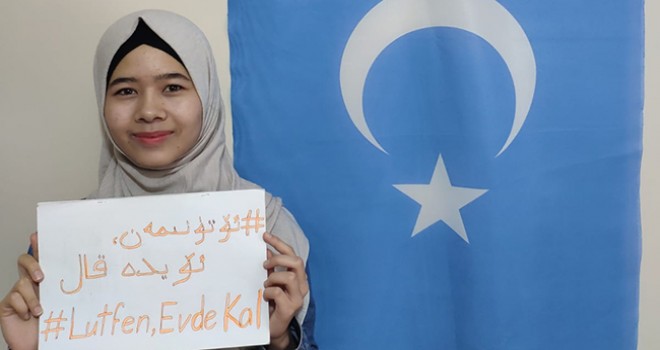 #ئۆتۈنىمەن،
ئۆيدە قال
#Lutfen, Evde Kal